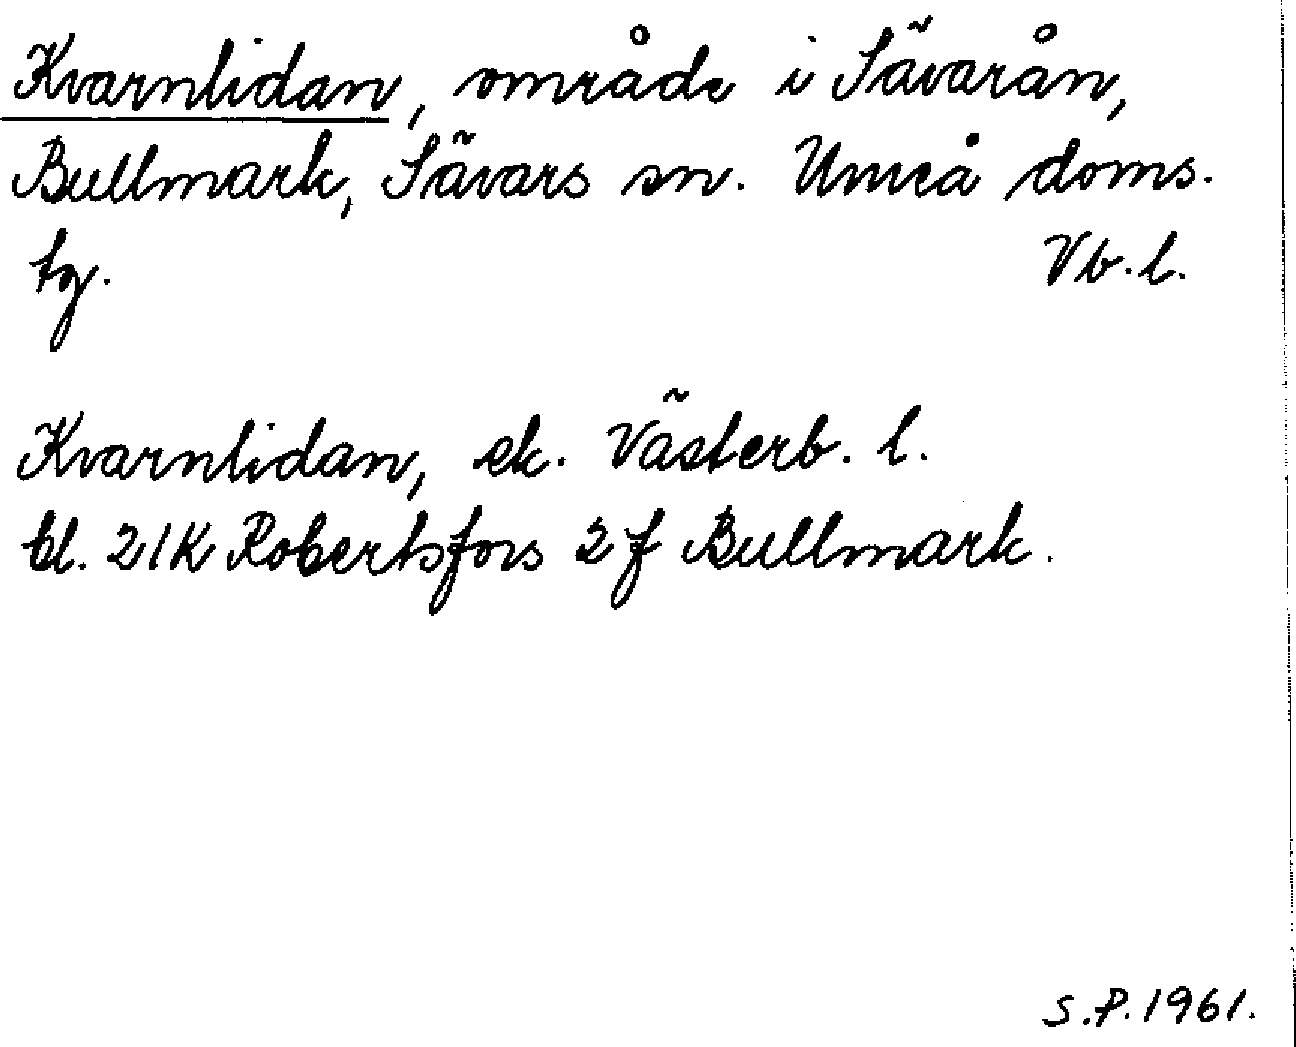 Kvarnlidan, område i Sävarån,
Bullmark, Sävars sn. Umeå doms.
tg. Vb. l.
Kvarnlidan, ek. Västerb. l.
bl. 21K Robertsfors 2 f Bullmark.
S.P. 1961.